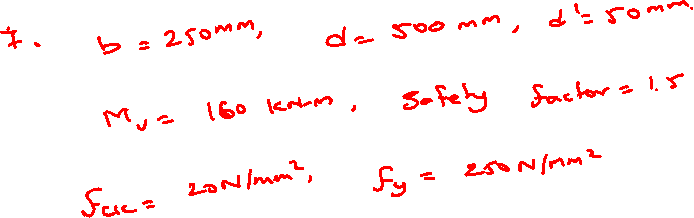 7. b = 250mm, d = 500 mm, d' = 50 mm
Mu = 160 kN-m, Safety factor = 1.5
fck = 20N/mm², fy = 250N/mm²